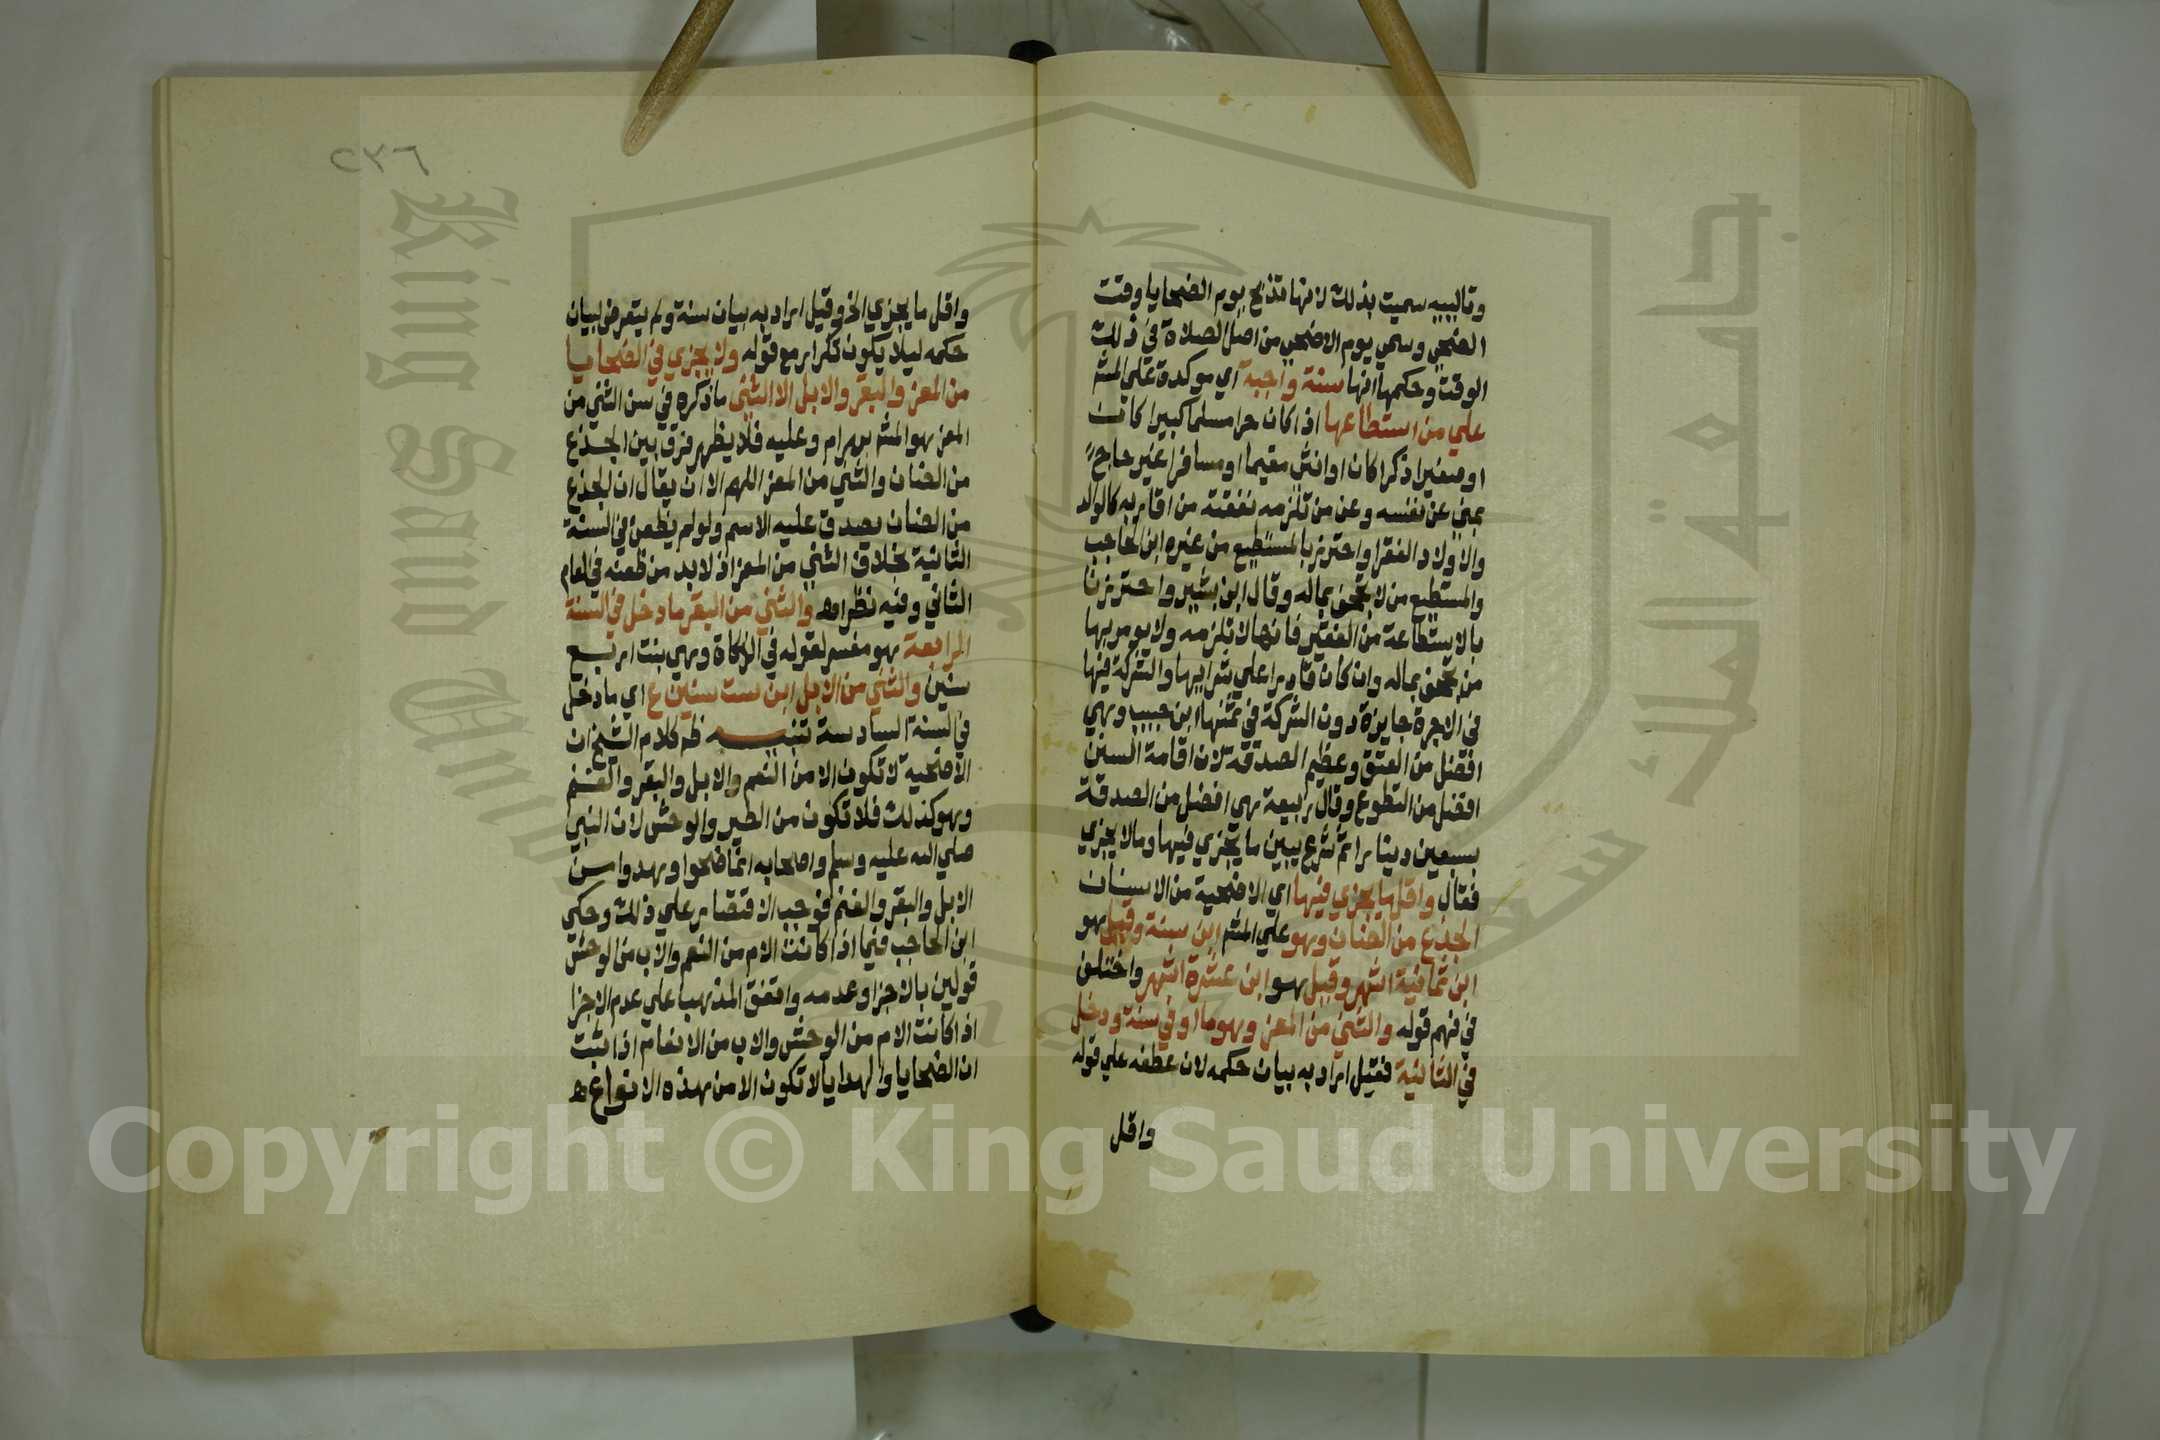 وقالبيه سميت بذلك لانها تذبح يوم الضحايا وقت
الضحي وسمي يوم الاضحي من اصل الصلاة في ذلك
الوقت وحكمها انها سنة واجبة اي موكدة على المش
علي من استطاعها اذا كان حرا مسلما كبيرا كان
او صغيرا ذكرا كان او انثي مقيما او مسافرا غير حاج
بمني عن نفسه وعن من تلزمه نفقته من اقاربه كالوالد
والاولاد الفقرا واحترز بالمستطيع من غيره ابن الحاجب
والمستطيع من لا تجحف بماله وقال ابن بشير واحترزنا
بالاستطاعة من الفقير فانها لا تلزمه ولا يومر بها
من تجحف بماله وان كان قادرا علي شرايها والشركة فيها
في الاجرة جايزة دون الشركة في ثمنها ابن حبيب وهي
افضل من العتق وعظيم الصدقة لان اقامة السنن
افضل من التطوع وقال ربيعة هي افضل من الصدقة
بسبعين دينارا ثم شرع يبين ما يجزي فيها وما لا يجزي
فقال واقل ما يجزي فيها اي الاضحية من الاسنان
الجذع من الضنان وهو علي المش ابن سنة وقيل هو
ابن ثمانية اشهر وقيل هو ابن عشرة اشهر واختلف
في فهم قوله والثني من المعز وهو ما اوفي سنة ودخل
في الثانية فقيل اراد به بيان حكمه لان عطفه علي قوله
واقل
٢٣٦
واقل ما يجزي الخ وقيل اراد به بيان سنة ولم يتعرض لبيان
حكمه ليلا يكون تكرار مع قوله ولا يجزي في الضحايا
من المعز والبقر والابل الا الثني ما ذكره في سن الثني من
المعز هو المش بهرام وعليه فلا يظهر فرق بين الجذع
من الضنان والثني من المعز اللهم الا ان يقال ان الجذع
من الضنان يصدق عليه الاسم ولو لم يطعن في السنة
الثانية بخلاف الثني من المعز اذ لا بد من طعنه في العام
الثاني وفيه نظر اه والثني من البقر ما دخل في السنة
الرابعة هو مفسر لقوله في الزكاة وهي بنت اربع
سنين والثني من الابل ابن ست سنين ع اي ما دخل
في السنة السادسة تنبيه ظم كلام الشيخ ان
الاضحية لا تكون الا من النعم والابل والبقر والغنم
وهو كذلك فلا تكون من الطير والوحش لان النبي
صلي الله عليه وسلم واصحابه انما ضحوا وهدوا من
الابل والبقر والغنم فوجب الاقتصار علي ذلك وحكي
ابن الحاجب فيما اذا كانت الام من النعم والاب من الوحش
قولين بالاجزا وعدمه واتفق المذهب علي عدم الاجزا
اذا كانت الام من الوحش والاب من الانعام اذا ثبت
ان الضحايا والهدايا لا تكون الا من هذه الانواع ه
Copyright © King Saud University